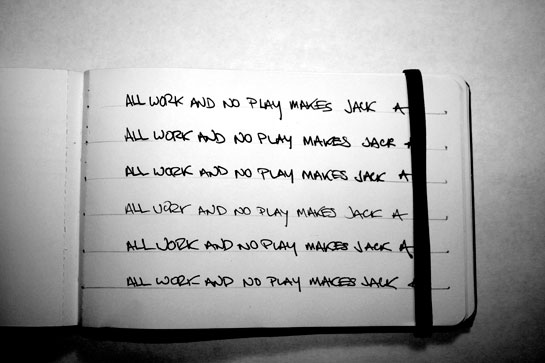 ALL WORK AND NO PLAY MAKES JACK A
ALL WORK AND NO PLAY MAKES JACK A
ALL WORK AND NO PLAY MAKES JACK A
ALL WORK AND NO PLAY MAKES JACK A
ALL WORK AND NO PLAY MAKES JACK A
ALL WORK AND NO PLAY MAKES JACK